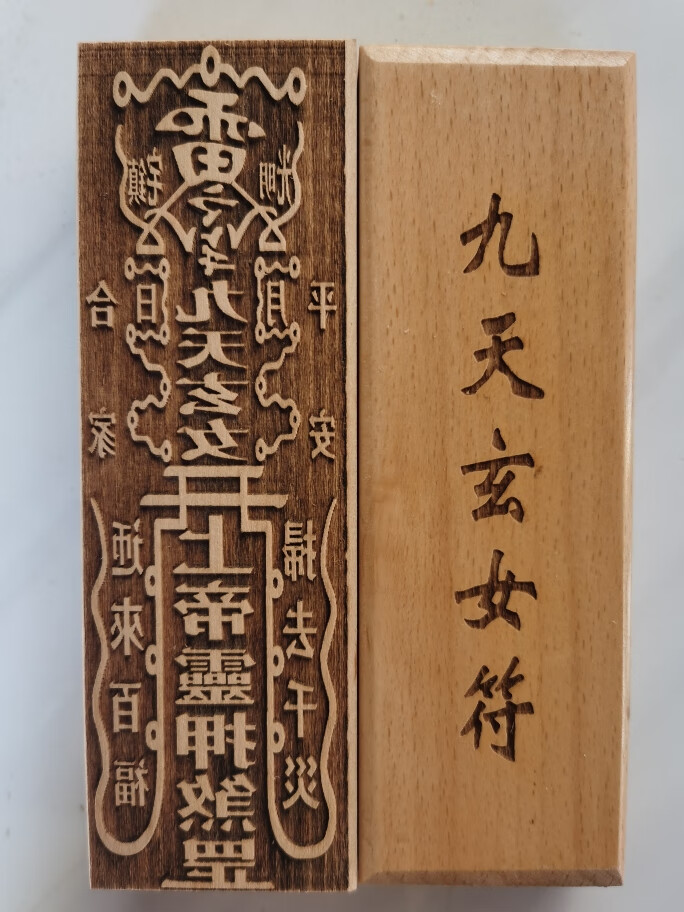 雷令
鎮宅
光明
日
月
九天玄女
合家
平安
上帝靈押煞罡
迎來百福
掃去千災
九天玄女符